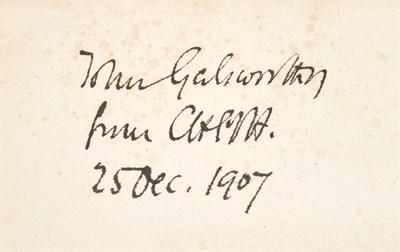 John Galsworthy
from
25 Dec. 1907